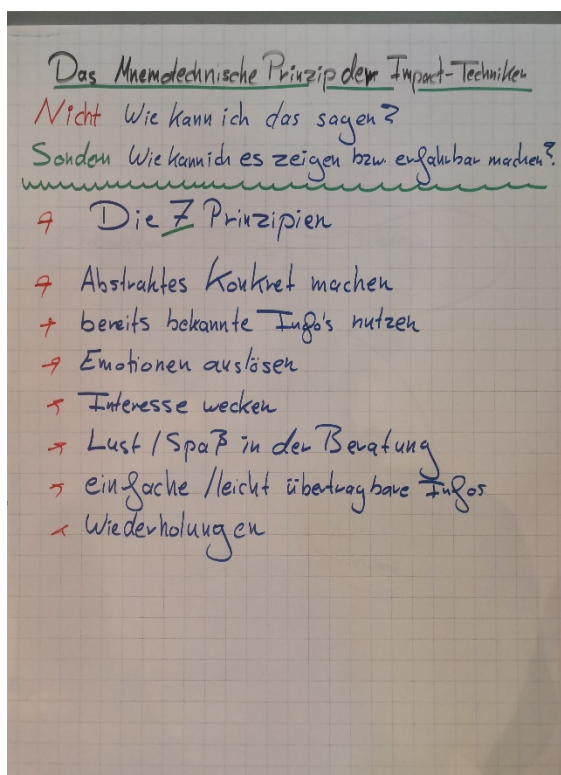 Das Mnemotechnische Prinzip der Impact-Techniken
Nicht Wie kann ich das sagen?
Sondern Wie kann ich es zeigen bzw. erfahrbar machen?
→ Die 7 Prinzipien
→ Abstraktes Konkret machen
→ bereits bekannte Info's nutzen
→ Emotionen auslösen
→ Interesse wecken
→ Lust / Spaß in der Beratung
→ einfache / leicht übertragbare Infos
→ Wiederholungen